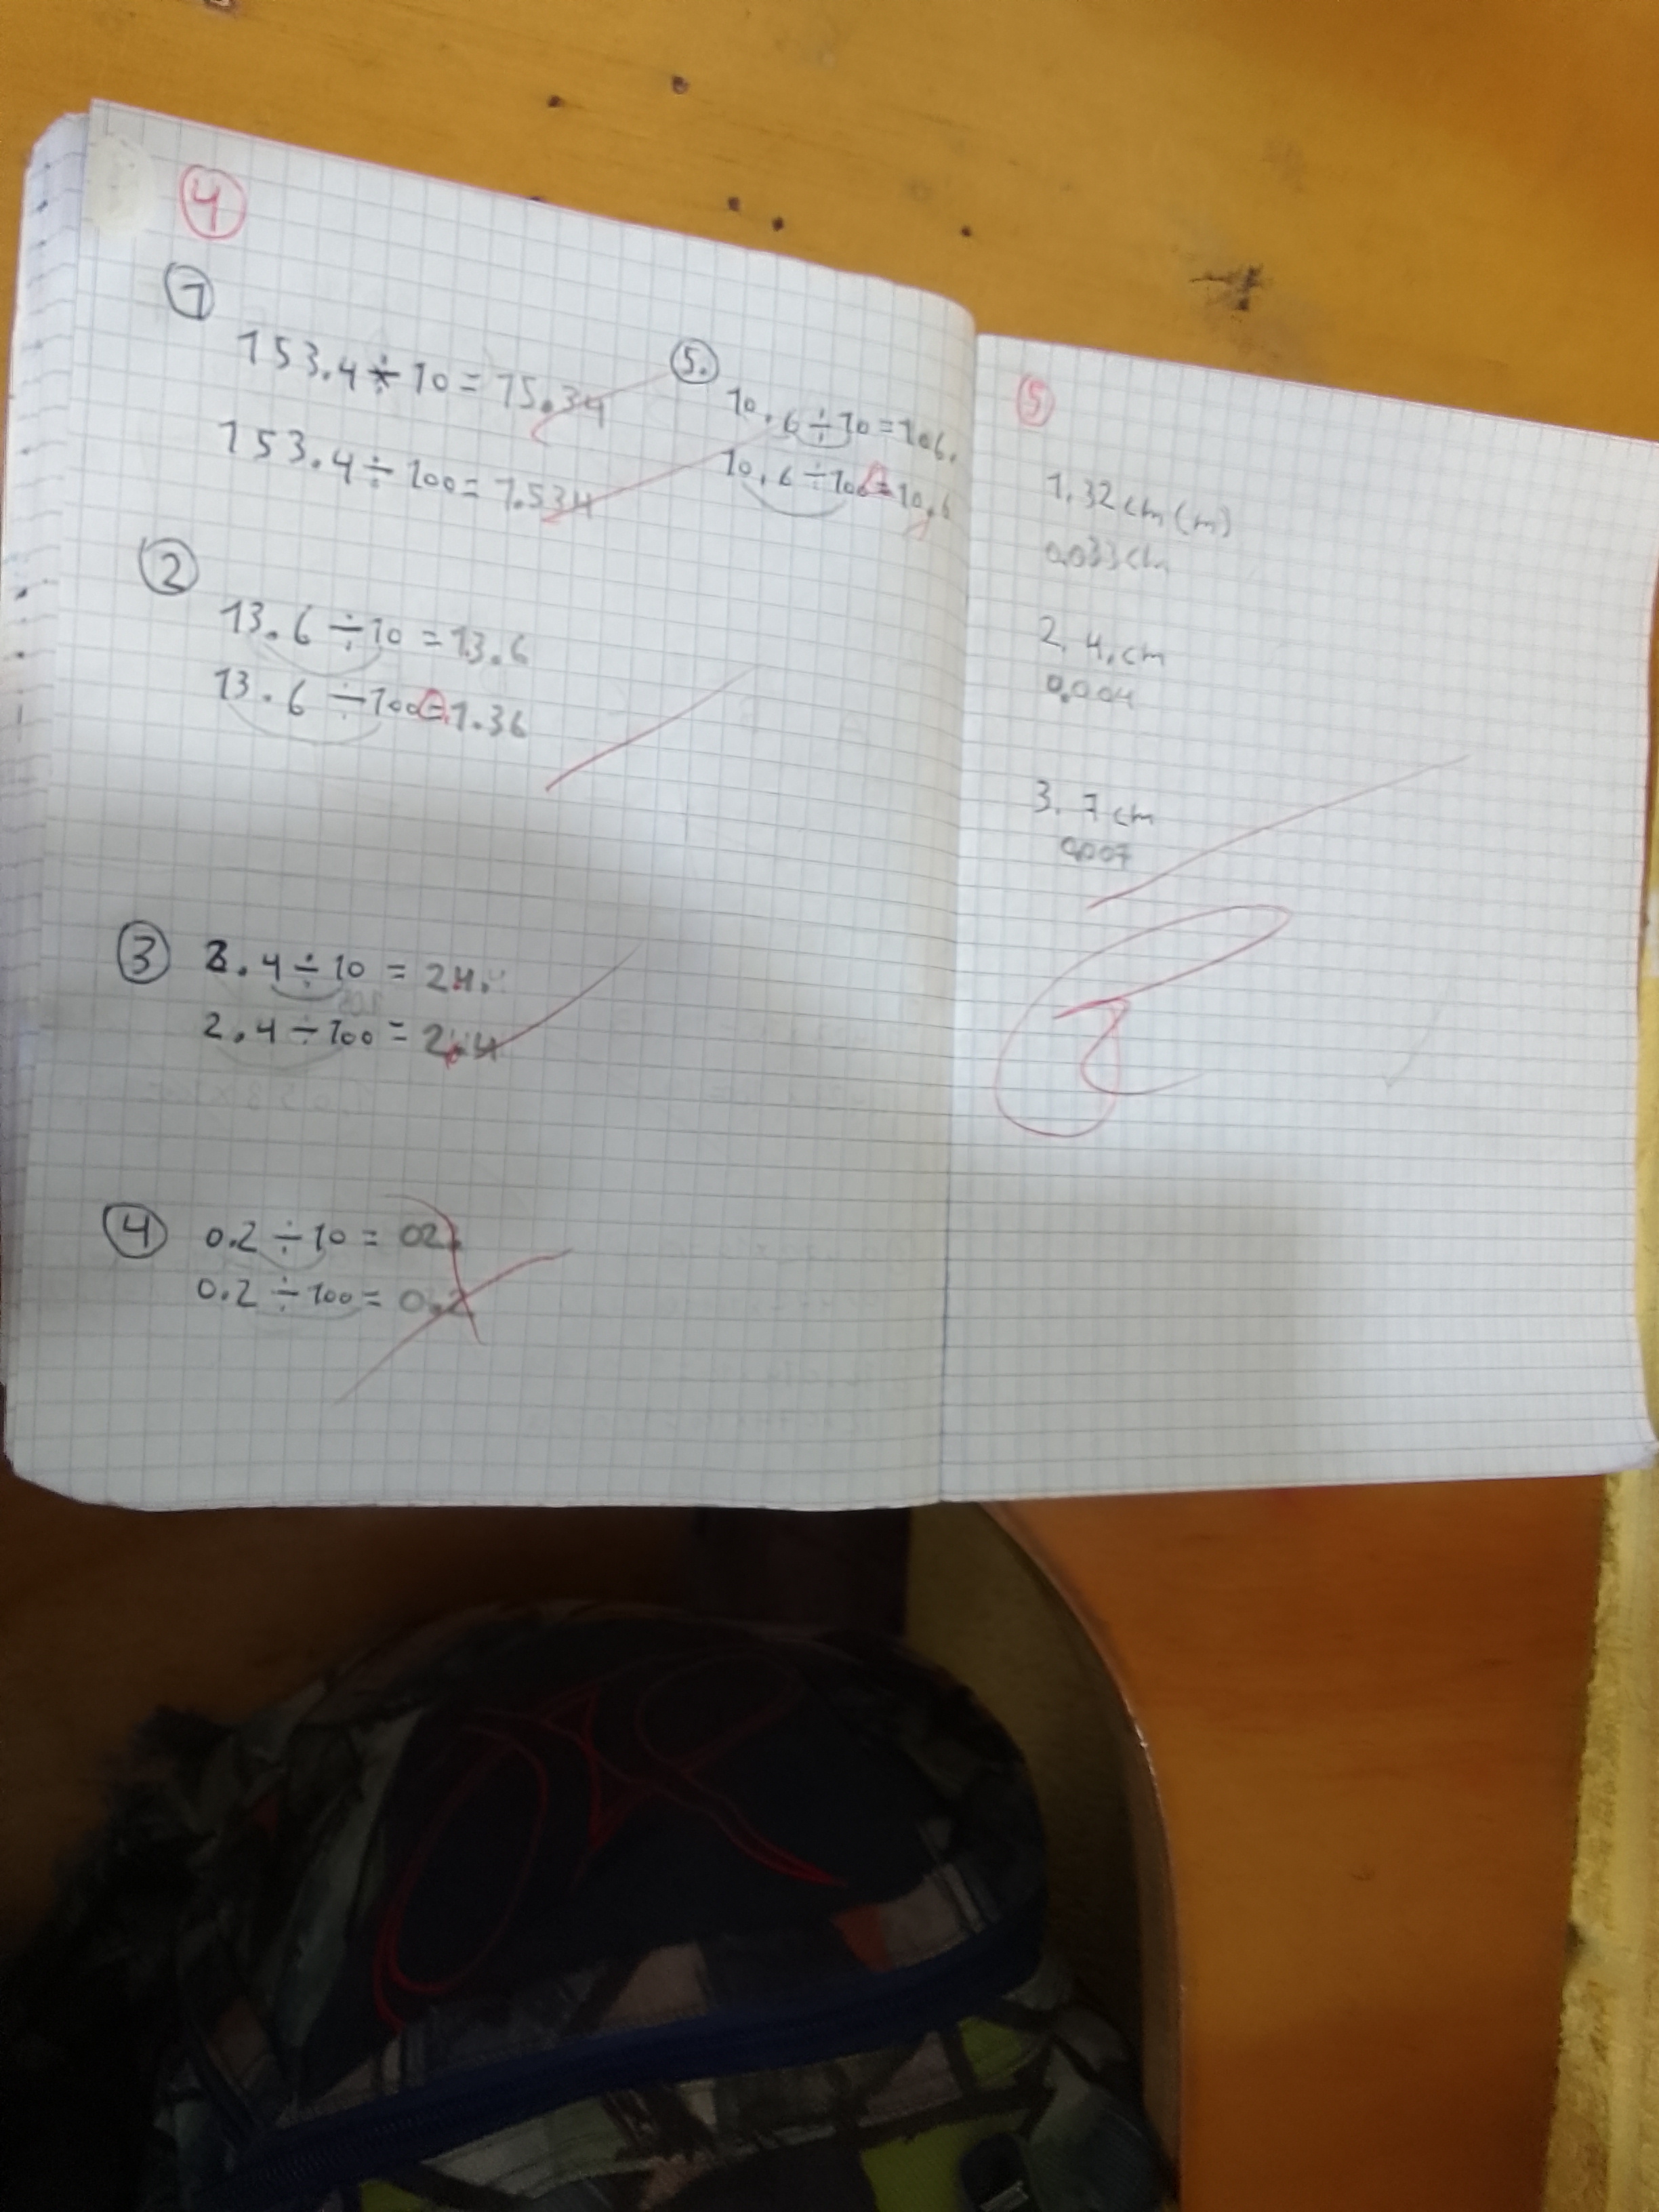 4
1
153.4 ÷ 10 = 15.34
153.4 ÷ 100 = 1.534
2
13.6 ÷ 10 = 13.6
13.6 ÷ 100 = 1.36
3
2.4 ÷ 10 = 24.
2.4 ÷ 100 = 2.4
4
0.2 ÷ 10 = 02.
0.2 ÷ 100 = 0.2
5.
10.6 ÷ 10 = 106.
10.6 ÷ 100 = 10.6
5
1. 32 cm (m)
2. 4. cm
0.004
3. 7 cm
0.007